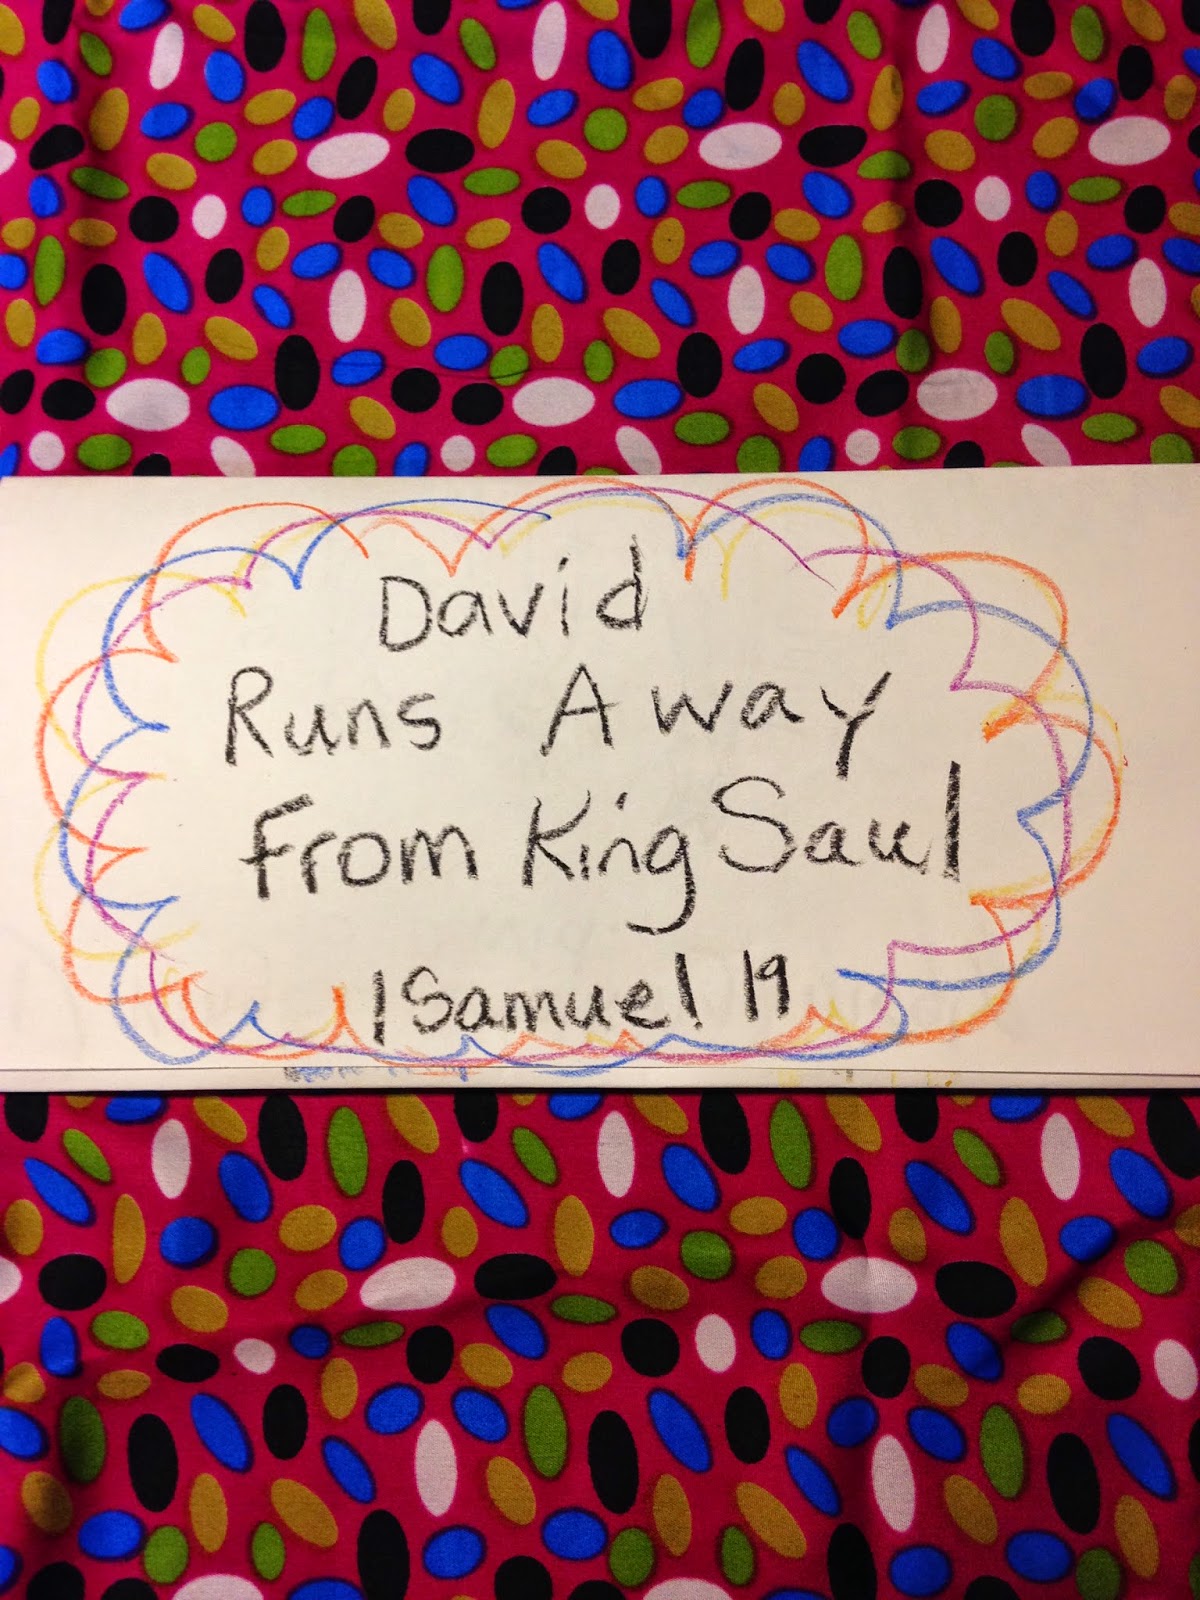 David
Runs Away
From King Saul
1 Samuel 19